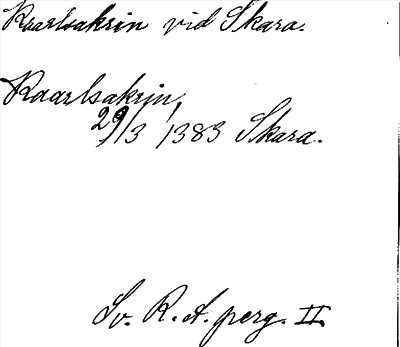 Kaarlsakrin vid Skara.
Kaarlsakrin,
29/3 1383 Skara.
Sv. R. A. perg. II